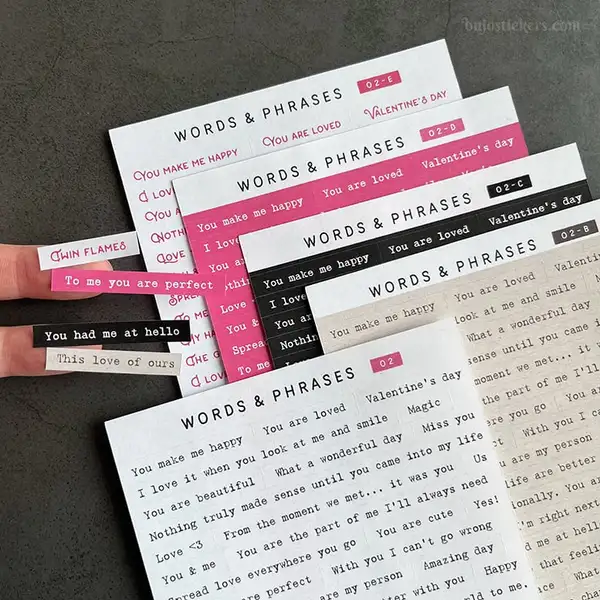 bujostickers.com
WORDS & PHRASES 02-E
YOU MAKE ME HAPPY YOU ARE LOVED VALENTINE'S DAY
I LOV
YOU ARE
NOTHIN
LOVE
SPRE
TO M
MY HA
THE G
I LOV
WORDS & PHRASES 02-D
You make me happy You are loved Valentine's day
I love
You are
Love
You &
Spread
To me
WORDS & PHRASES 02-C
You make me happy You are loved Valentine's day
I love
You are
Nothin
WORDS & PHRASES 02-B
You make me happy You are loved Valentin
look at me and smile Magic
What a wonderful day
sense until you came i
moment we met... it w
the part of me I'll
where you go You are
With you I ca
are my person
life are better
ionally. You ar
'm right next
me at hello
that feelin
ce What
TWIN FLAMES
To me you are perfect
You had me at hello
This love of ours
WORDS & PHRASES 02
You make me happy You are loved Valentine's day
I love it when you look at me and smile Magic
You are beautiful What a wonderful day Miss you
Nothing truly made sense until you came into my life
Love <3 From the moment we met... it was you Us
You & me You are the part of me I'll always need
Spread love everywhere you go You are cute Yes!
are perfect With you I can't go wrong
are my person Amazing day
better with you Happy
old to me.